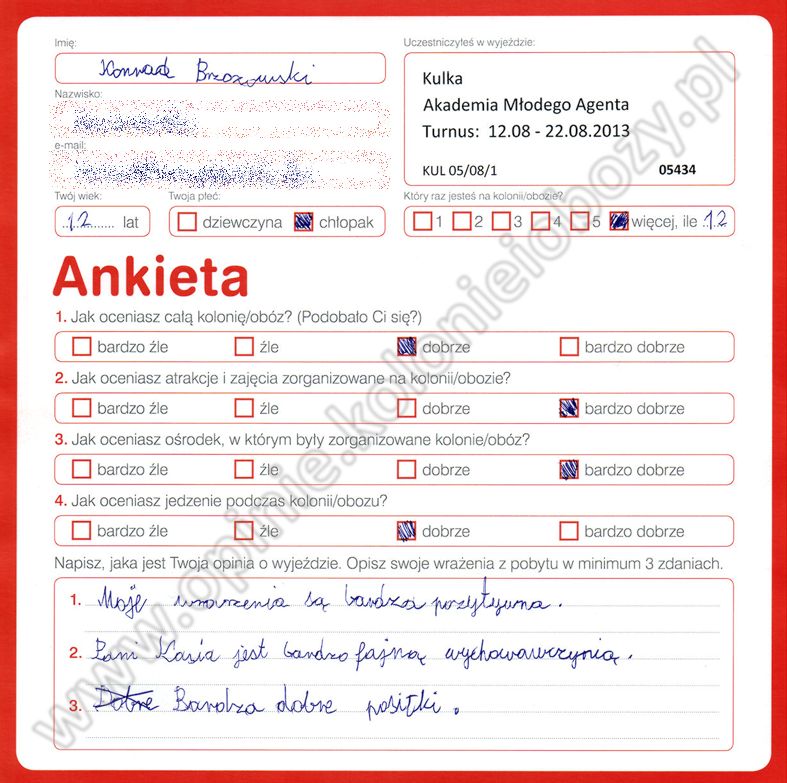 Imię:
Konrad Brzozowski
Uczestniczyłeś w wyjeździe:
Kulka
Akademia Młodego Agenta
Turnus: 12.08 - 22.08.2013
KUL 05/08/1 05434
Nazwisko:
e-mail:
Twój wiek:
12 lat
Twoja płeć:
dziewczyna chłopak
Który raz jesteś na kolonii/obozie?
1 2 3 4 5 więcej, ile 12
Ankieta
1. Jak oceniasz całą kolonię/obóz? (Podobało Ci się?)
bardzo źle źle dobrze bardzo dobrze
2. Jak oceniasz atrakcje i zajęcia zorganizowane na kolonii/obozie?
bardzo źle źle dobrze bardzo dobrze
3. Jak oceniasz ośrodek, w którym były zorganizowane kolonie/obóz?
bardzo źle źle dobrze bardzo dobrze
4. Jak oceniasz jedzenie podczas kolonii/obozu?
bardzo źle źle dobrze bardzo dobrze
Napisz, jaka jest Twoja opinia o wyjeździe. Opisz swoje wrażenia z pobytu w minimum 3 zdaniach.
1. Moje wrarzenia są bardza pozytywna.
2. Pani Kasia jest bardzo fajną wychowawczynią.
3. Dobre Bardza dobre posiłki.
www.opinie.kolonieiobozy.pl